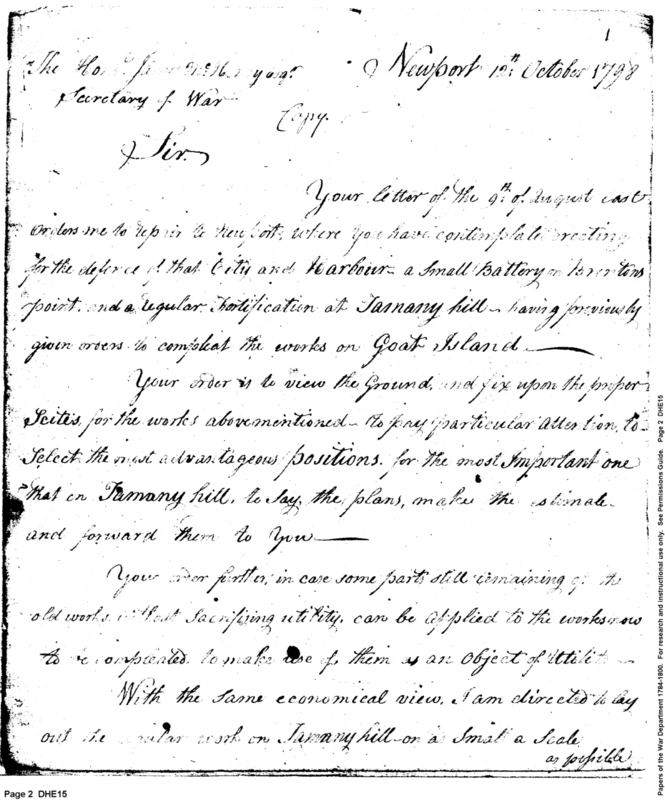 1
Newport 12th October 1798
The Honbl James McHenry Esqr
Secretary of War
Copy.
Sir.
Your letter of the 9th of August last
orders me to repair to Newport, where you have contemplated erecting
for the defence of that City and Harbour - a small Battery on Brentons
point, and a regular fortification at Tamany hill - having previously
given orders to compleat the works on Goat Island —
Your order is to view the Ground, and fix upon the proper
Scites, for the works abovementioned - to pay particular attention, to
Select the most advantageous positions. for the most Important one
that on Tamany hill, to say, the plans, make the estimate
and forward them to You —
Your order further, in case some parts still remaining of the
old works, without Sacrifising utility, can be applied to the works now
to be compleated to make use of them as an object of Utility -
With the same economical view, I am directed to lay
out the regular work on Tamany hill - on as Small a Scale
as possible
Page 2 DHE15
Papers of the War Department 1784-1800. For research and instructional use only. See Permissions Guide. Page 2 DHE15